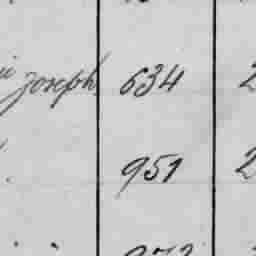 Joseph 634 2
951 2